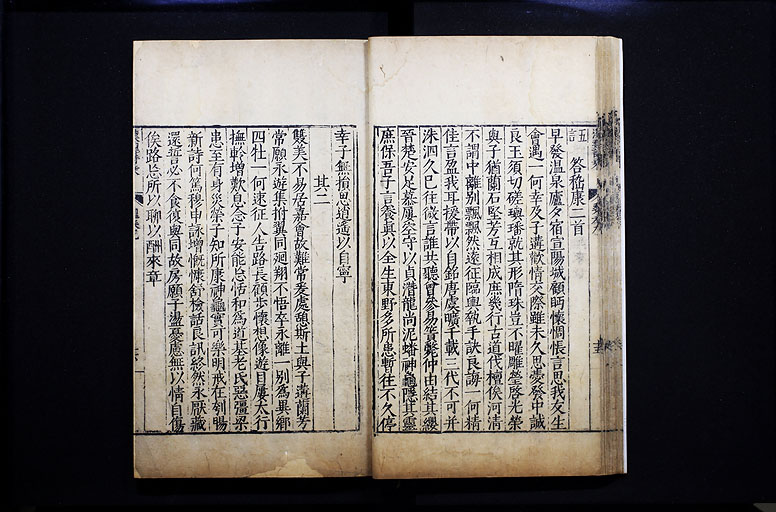 五言 答嵇康二首
早發溫泉廬夕宿宣陽城顧眄懷惆悵言思我友生
會遇一何幸及子遘歡情交際雖未久思愛發中誠
良玉須切磋璵璠就其形隋珠豈不曜雕瑩啓光榮
與子猶蘭石堅芳互相成庶幾行古道伐檀俟河清
不謂中離別飄飄然遠征臨輿執手訣良誨一何精
佳言盈我耳援帶以自銘唐虞曠千載三代不可幷
洙泗久已往微言誰共聽曾參易簀斃仲由結其纓
晉楚安足慕屢空守以貞潛龍尚泥蟠神龜隱其靈
庶保吾子言養眞以全生東野多所患暫往不久停
幸子無損思逍遙以自寧
其二
雙美不易居嘉會故難常爰處憩斯土與子遘蘭芳
常願永遊集拊翼同迴翔不悟卒永離一別爲異鄉
四牡一何速征人告路長顧步懷想像遊目屢太行
撫軨增歎息念子安能忘恬和爲道基老氏惡彊梁
患至有身災榮子知所康神龜實可樂明戒在刳腸
新詩何篤穆申詠增慨慷舒檢詰良訊終然永厭藏
還誓必不食復與同故房願子盪憂慮無以情自傷
俟路忘所以聊以酬來章